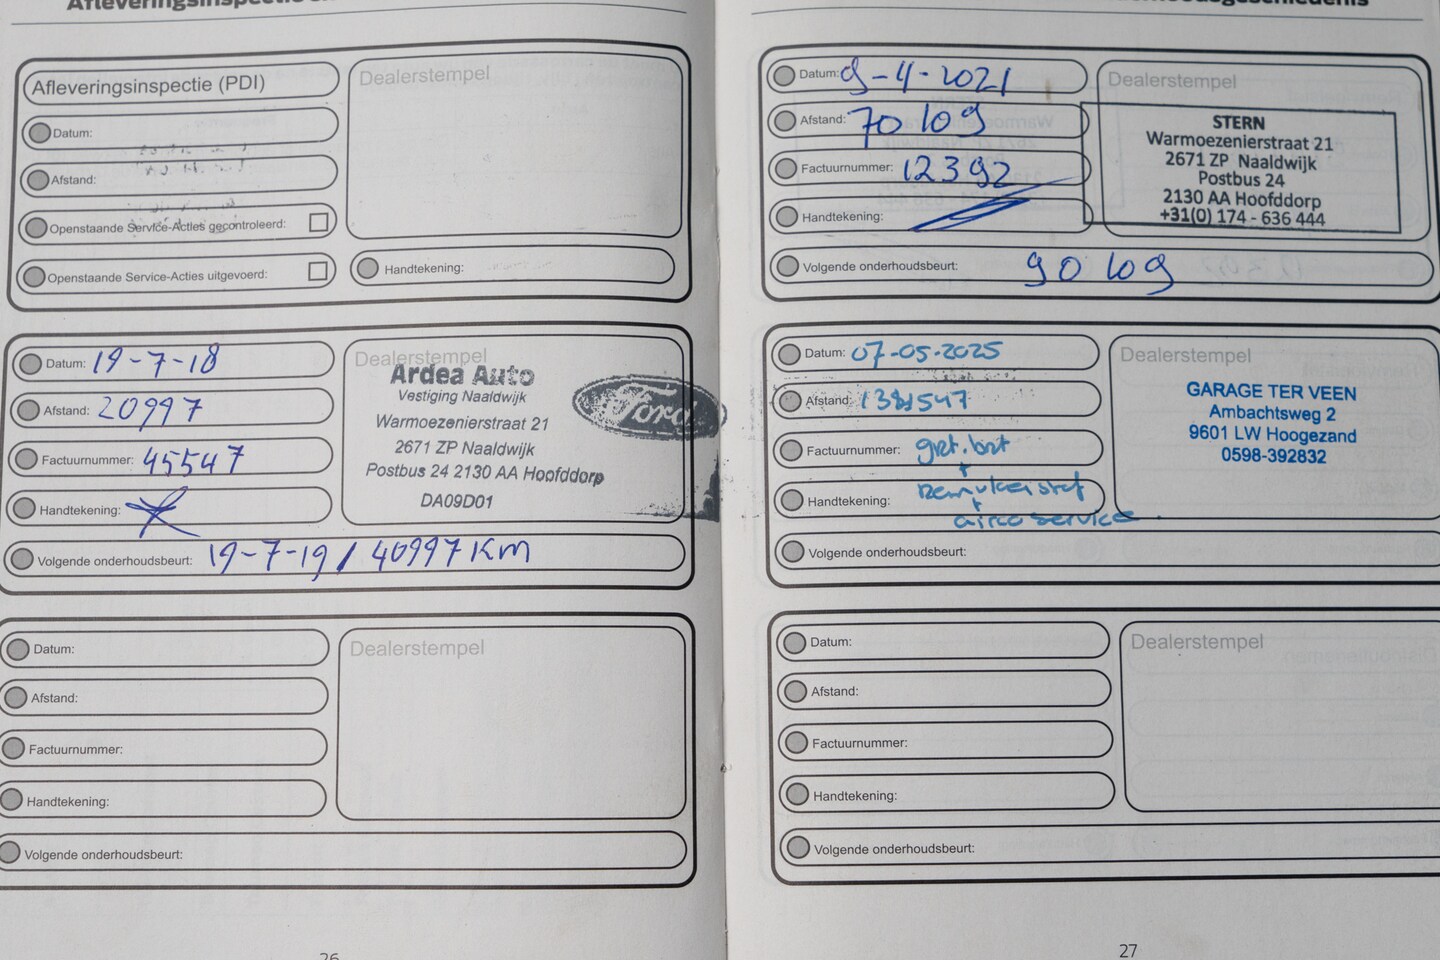 Afleveringsinspectie
Afleveringsinspectie (PDI)
Dealerstempel
Datum:
Afstand:
Openstaande Service-Acties gecontroleerd:
Openstaande Service-Acties uitgevoerd:
Handtekening:
Datum: 19-7-18
Afstand: 20997
Factuurnummer: 45547
Handtekening:
Dealerstempel
Ardea Auto
Vestiging Naaldwijk
Warmoezenierstraat 21
2671 ZP Naaldwijk
Postbus 24 2130 AA Hoofddorp
DA09D01
Ford
Volgende onderhoudsbeurt: 19-7-19 / 40997 KM
Datum:
Afstand:
Factuurnummer:
Handtekening:
Dealerstempel
Volgende onderhoudsbeurt:
26
Datum: 9-4-2021
Afstand: 70109
Factuurnummer: 12392
Handtekening:
Dealerstempel
STERN
Warmoezenierstraat 21
2671 ZP Naaldwijk
Postbus 24
2130 AA Hoofddorp
+31(0) 174 - 636 444
Volgende onderhoudsbeurt: 90109
Datum: 07-05-2025
Afstand:
Factuurnummer: grt. brt
+
Handtekening:
+
airco service.
Dealerstempel
GARAGE TER VEEN
Ambachtsweg 2
9601 LW Hoogezand
0598-392832
Volgende onderhoudsbeurt:
Datum:
Afstand:
Factuurnummer:
Handtekening:
Dealerstempel
Volgende onderhoudsbeurt:
27